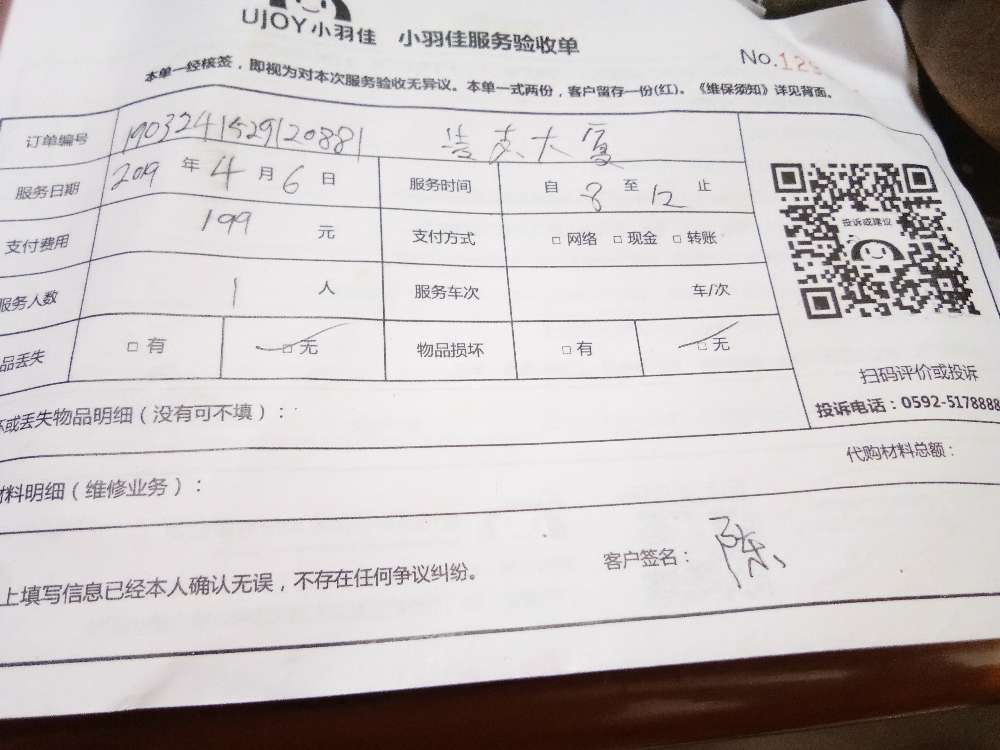 UJOY小羽佳 小羽佳服务验收单
No.129
本单一经核签，即视为对本次服务验收无异议。本单一式两份，客户留存一份(红)。《维保须知》详见背面。
订单编号 190324152912088 1 大厦
服务日期 2019 年 4 月 6 日 服务时间 自 8 至 12 止
支付费用 199 元 支付方式 □ 网络 □ 现金 □ 转账
服务人数 1 人 服务车次 车/次
品丢失 □ 有 □ 无 物品损坏 □ 有 □ 无
投诉或建议
扫码评价或投诉
投诉电话：0592-5178888
坏或丢失物品明细（没有可不填）：
材料明细（维修业务）： 代购材料总额：
上填写信息已经本人确认无误，不存在任何争议纠纷。 客户签名： 陈